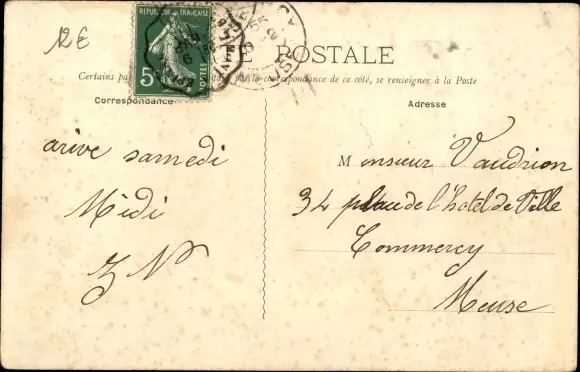 12 E
REPUBLIQUE FRANÇAISE
5c
POSTES
E POSTALE
Certains pa correspondance de ce côté, se renseigner à la Poste
Correspondance
Adresse
arive samedi
Midi
Monsieur Vaudrion
34 place de l'hotel de Ville
Commercy
Meuse